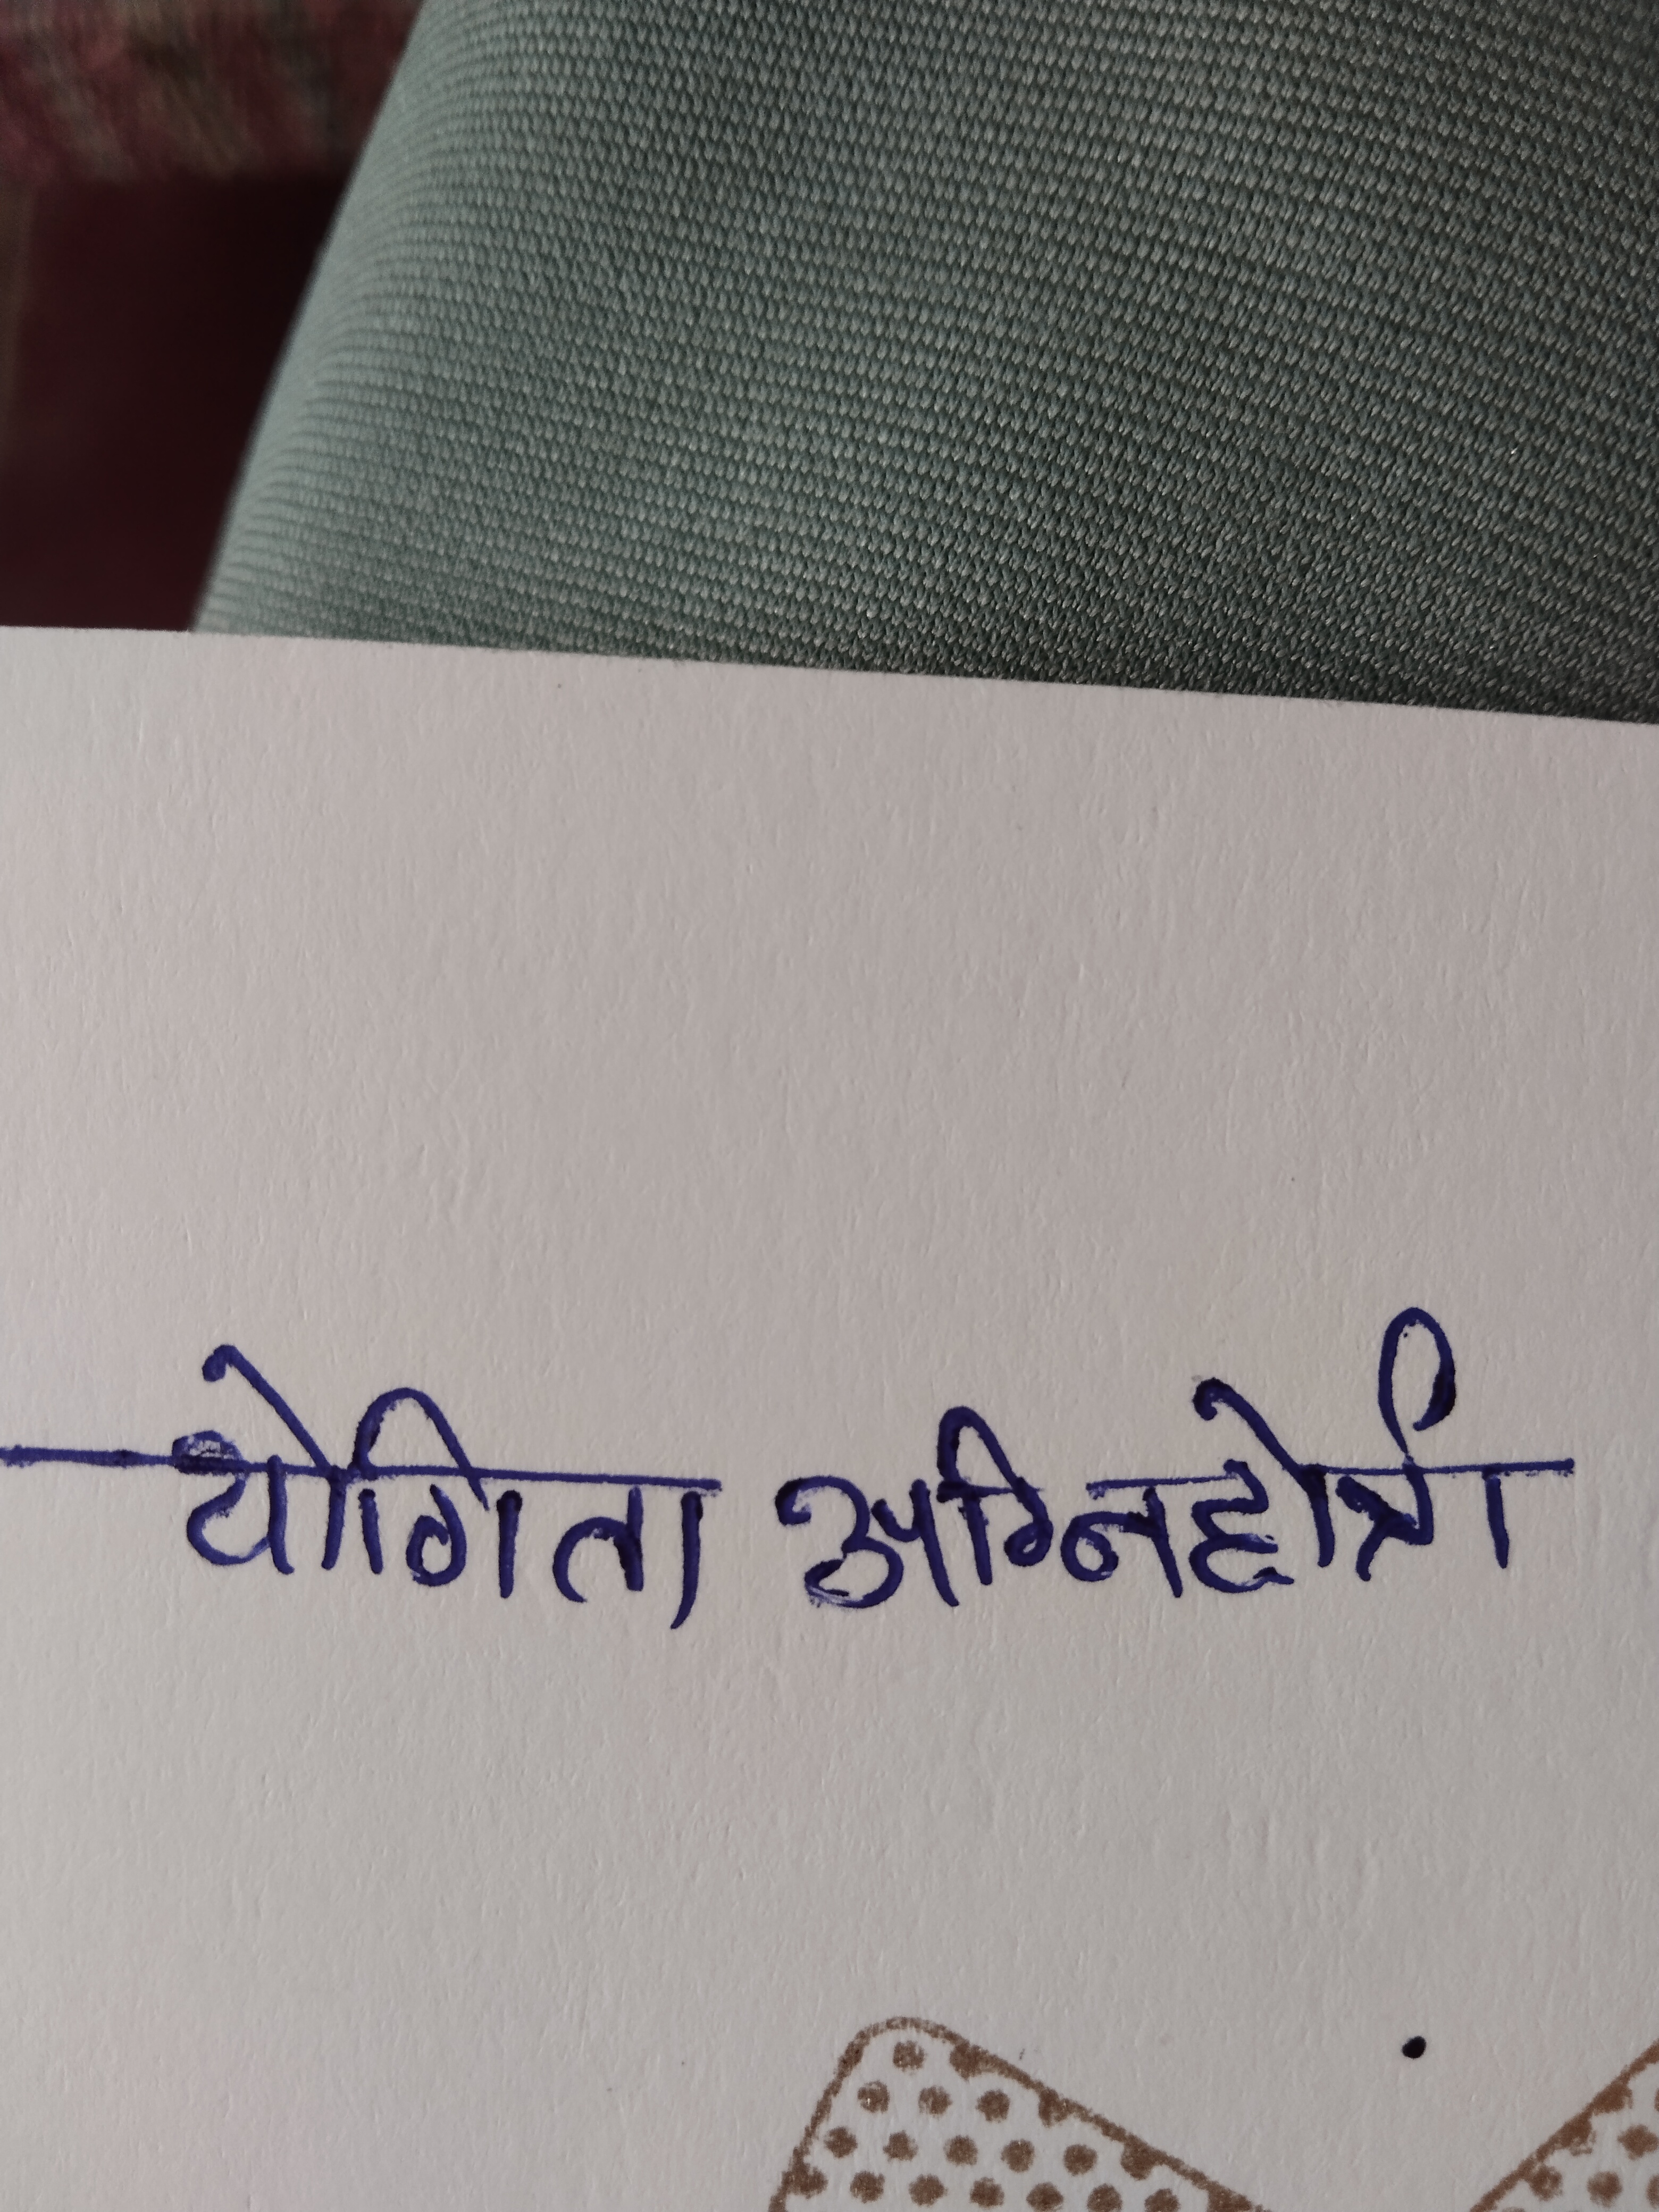 योगिता अग्निहोत्री